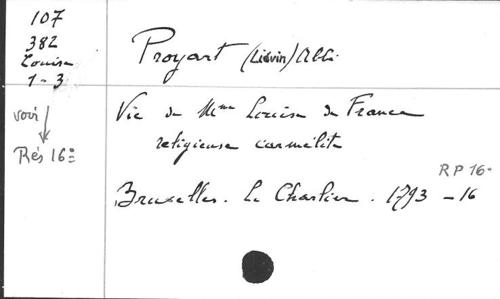 107
382
Louise
1-3
voir
Rés 16º
Proyart (Liévin) Abbé.
Vie de Mme Louise de France
religieuse carmélite
RP 16º
Bruxelles. Le Charlier. 1793 - 16